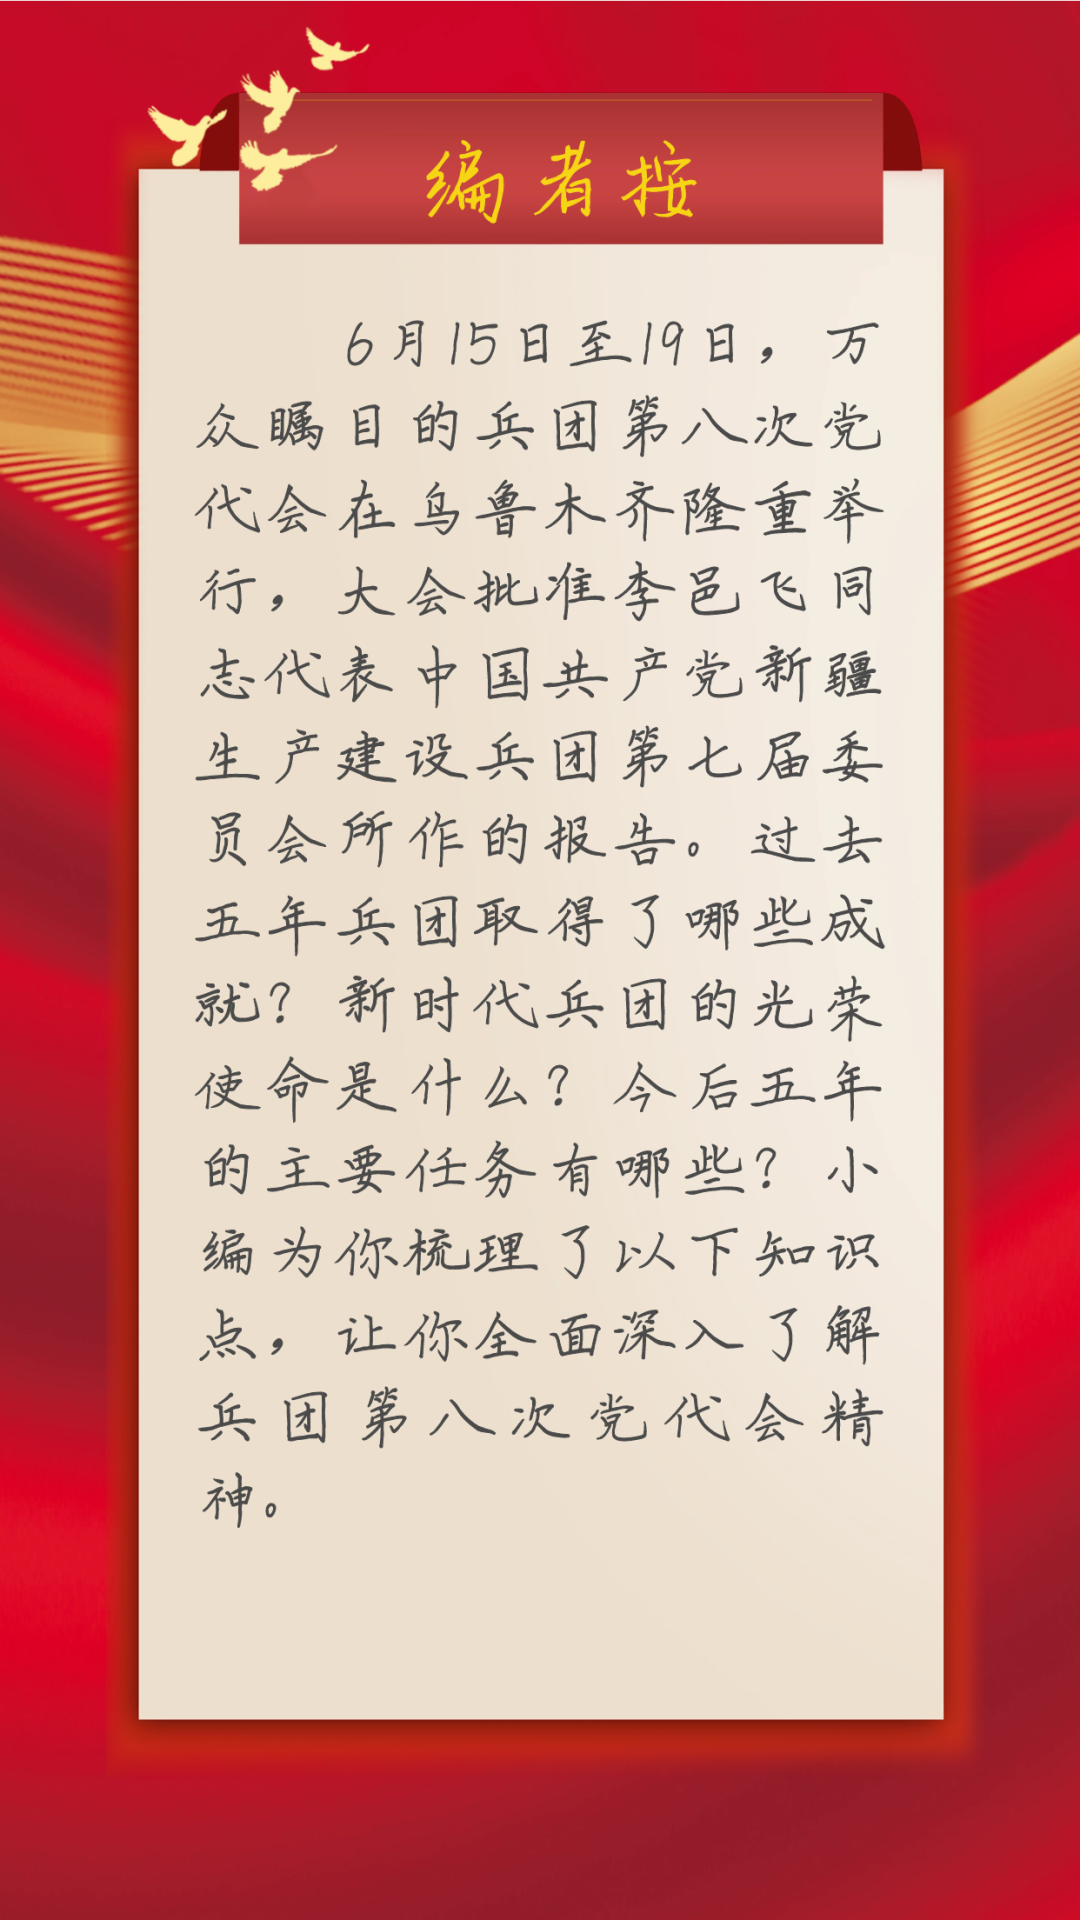 编者按
6月15日至19日，万
众瞩目的兵团第八次党
代会在乌鲁木齐隆重举
行，大会批准李邑飞同
志代表中国共产党新疆
生产建设兵团第七届委
员会所作的报告。过去
五年兵团取得了哪些成
就？新时代兵团的光荣
使命是什么？今后五年
的主要任务有哪些？小
编为你梳理了以下知识
点，让你全面深入了解
兵团第八次党代会精
神。